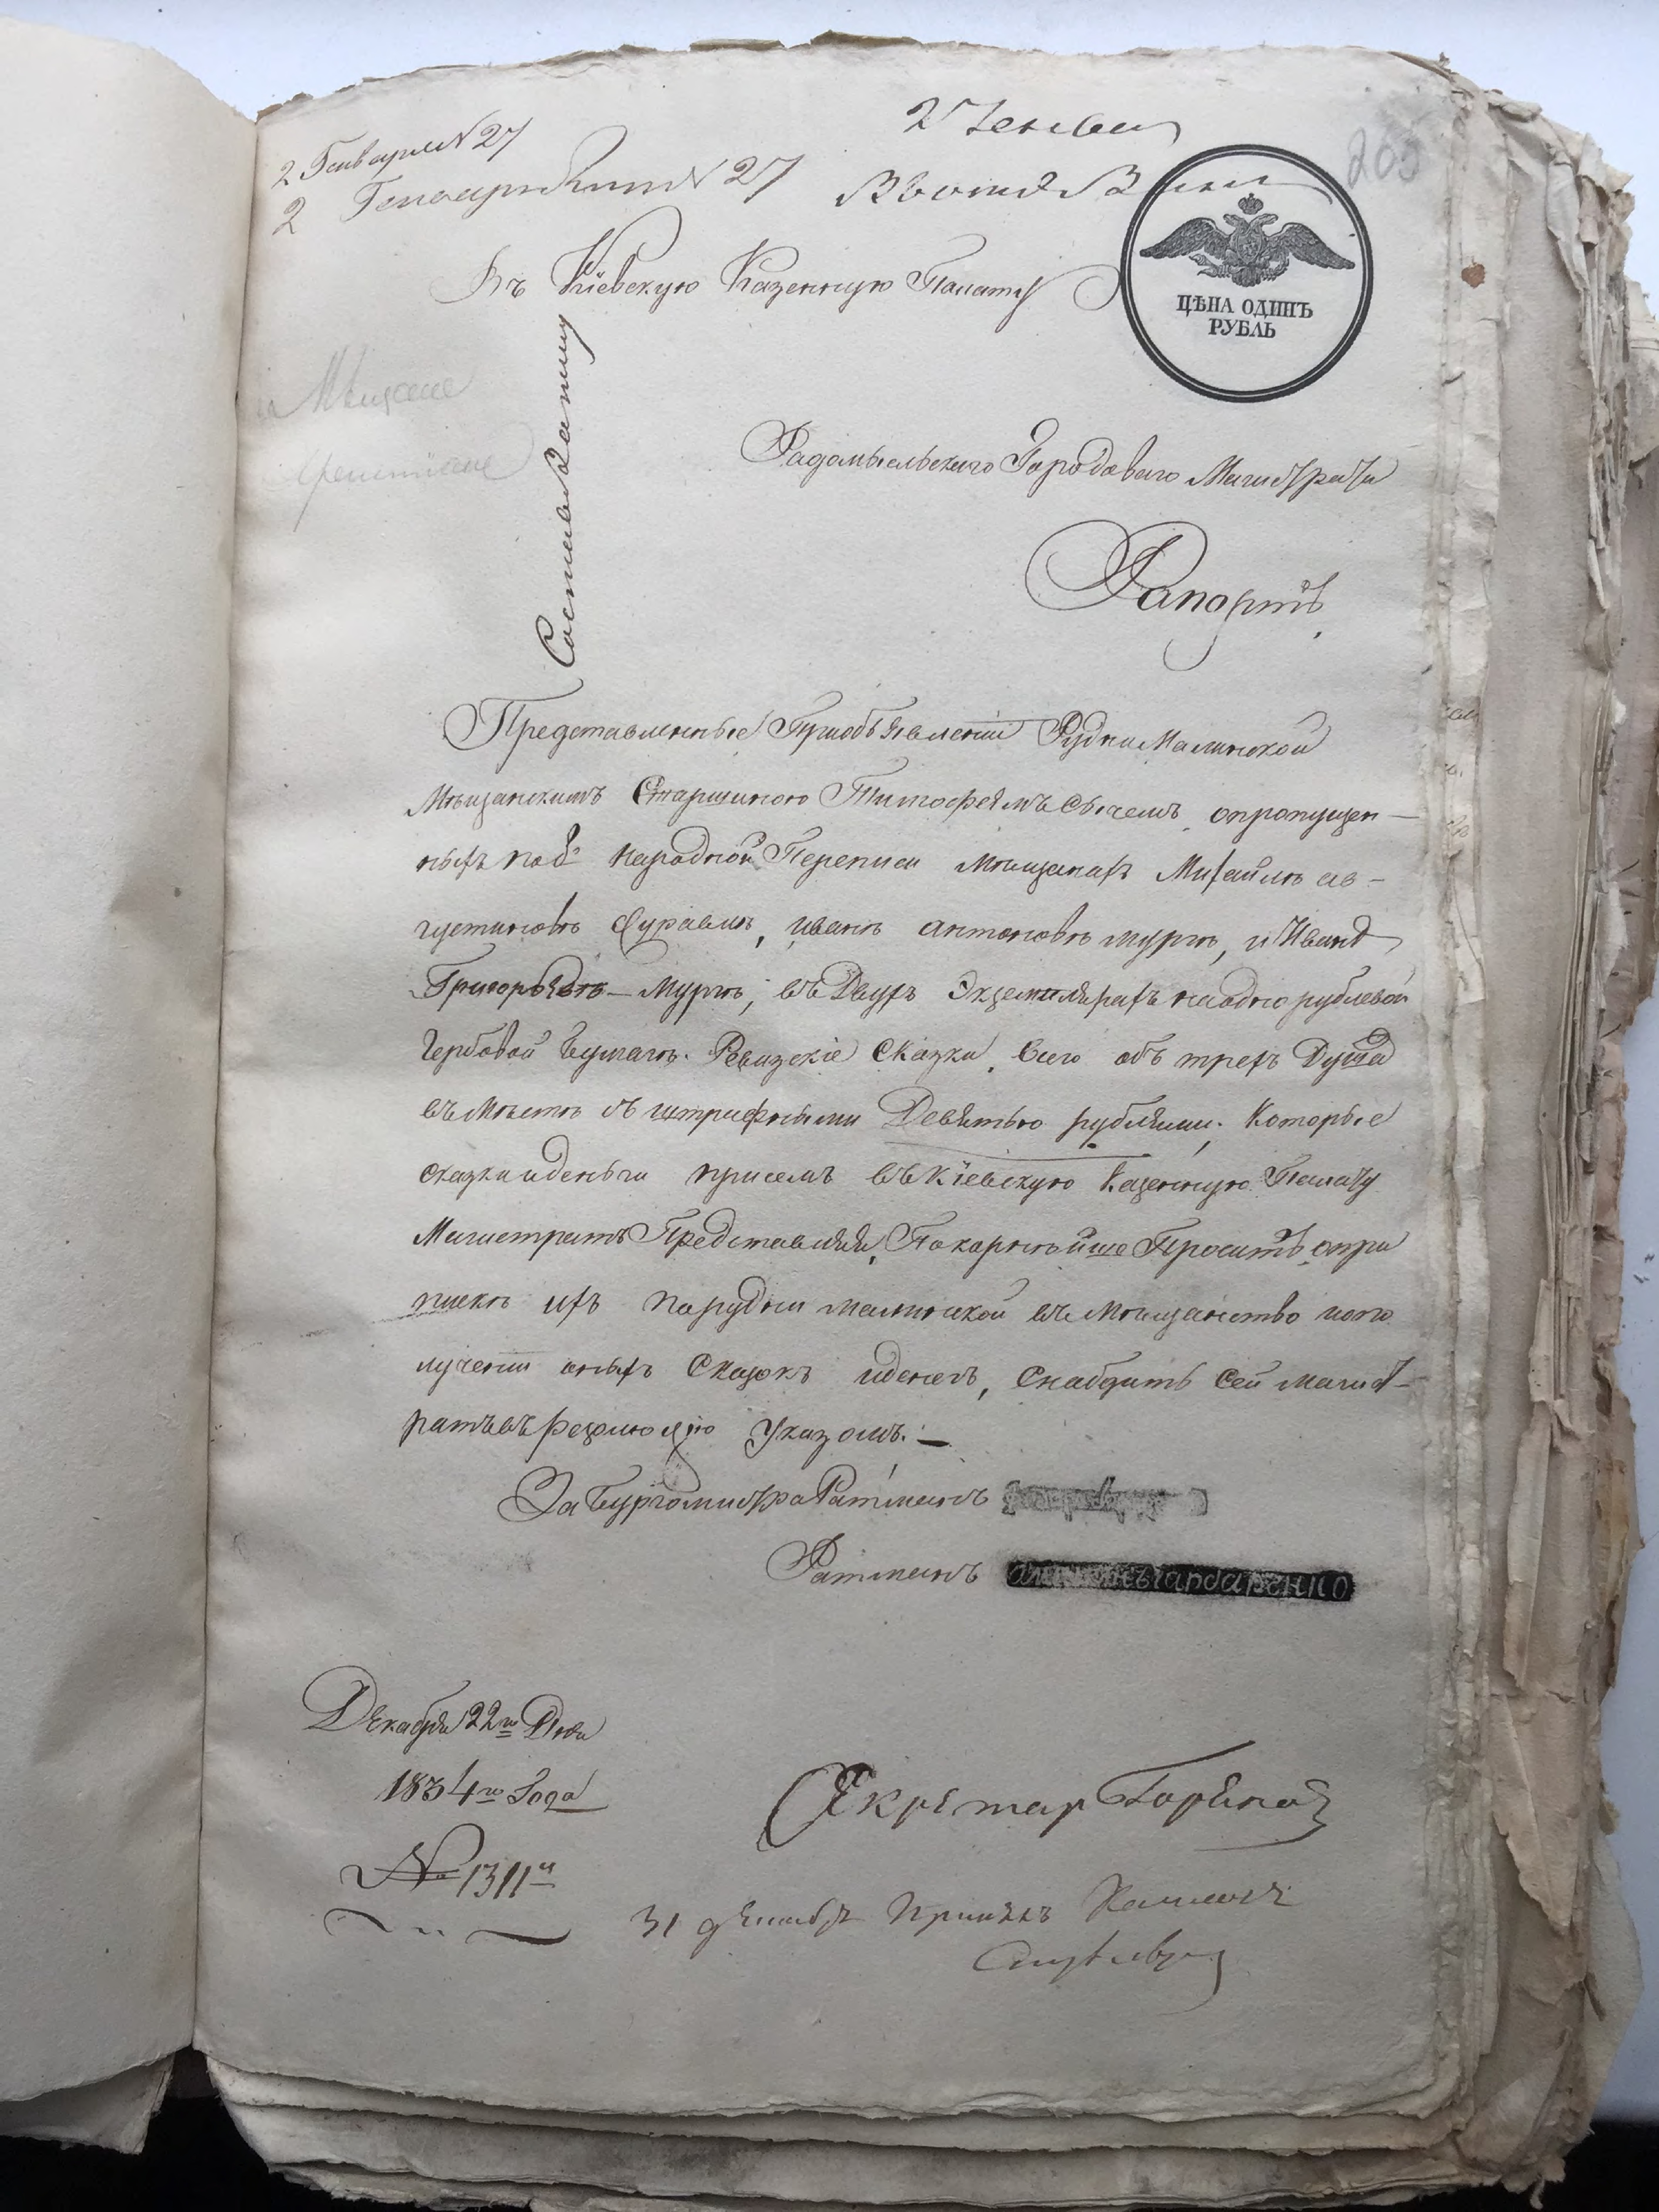 2 Генваря № 27
2 № 27
205
Въ Кіевскую Казенную Палату
ЦѢНА ОДИНЪ
РУБЛЬ
Мѣщане
Радомысльскаго Городоваго Магистрата
Рапортъ
Представленные При объявленіи Рудни Малинской
Мѣщанскимъ Старшиною Тимофеемъ Сычемъ, опропущен-
ныхъ по 8й народной Переписи Мѣщанахъ Михайлѣ ав-
густиновѣ Журавлѣ, ивань антоновѣ мурзѣ, и Иванѣ
Григорьевѣ Мурзѣ, въ Двухъ Экземплярахъ наодно рублевой
Гербовой бумагѣ. Ревизскіе Сказки, Всего объ трехъ Душахъ
въмѣстѣ съ штрафными Девятью рублями. Которые
сказки иденьги присемъ въ Кіевскую Казенную Палату
Магистратъ Представляя, Покорнѣйше Проситъ, опри
пискѣ ихъ порудни малинской въ мѣщанство ипопо
лученіи оныхъ Сказокъ иденегъ, Снабдить Сей магист-
ратъ въ резолюцію Указомъ. —
За Бургомистра Ратманъ
Ратманъ
Декабря 22го Дня
1834го Года
№ 1311й
Секретар
31 декабр Принялъ